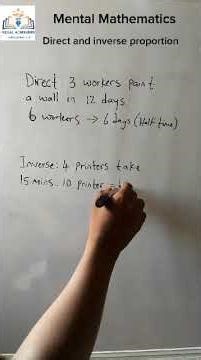 Mental Mathematics
Direct and inverse proportion
Direct 3 workers paint
a wall in 12 days
6 workers → 6 days (Half time)
Inverse: 4 printers take
15 mins. 10 printer =